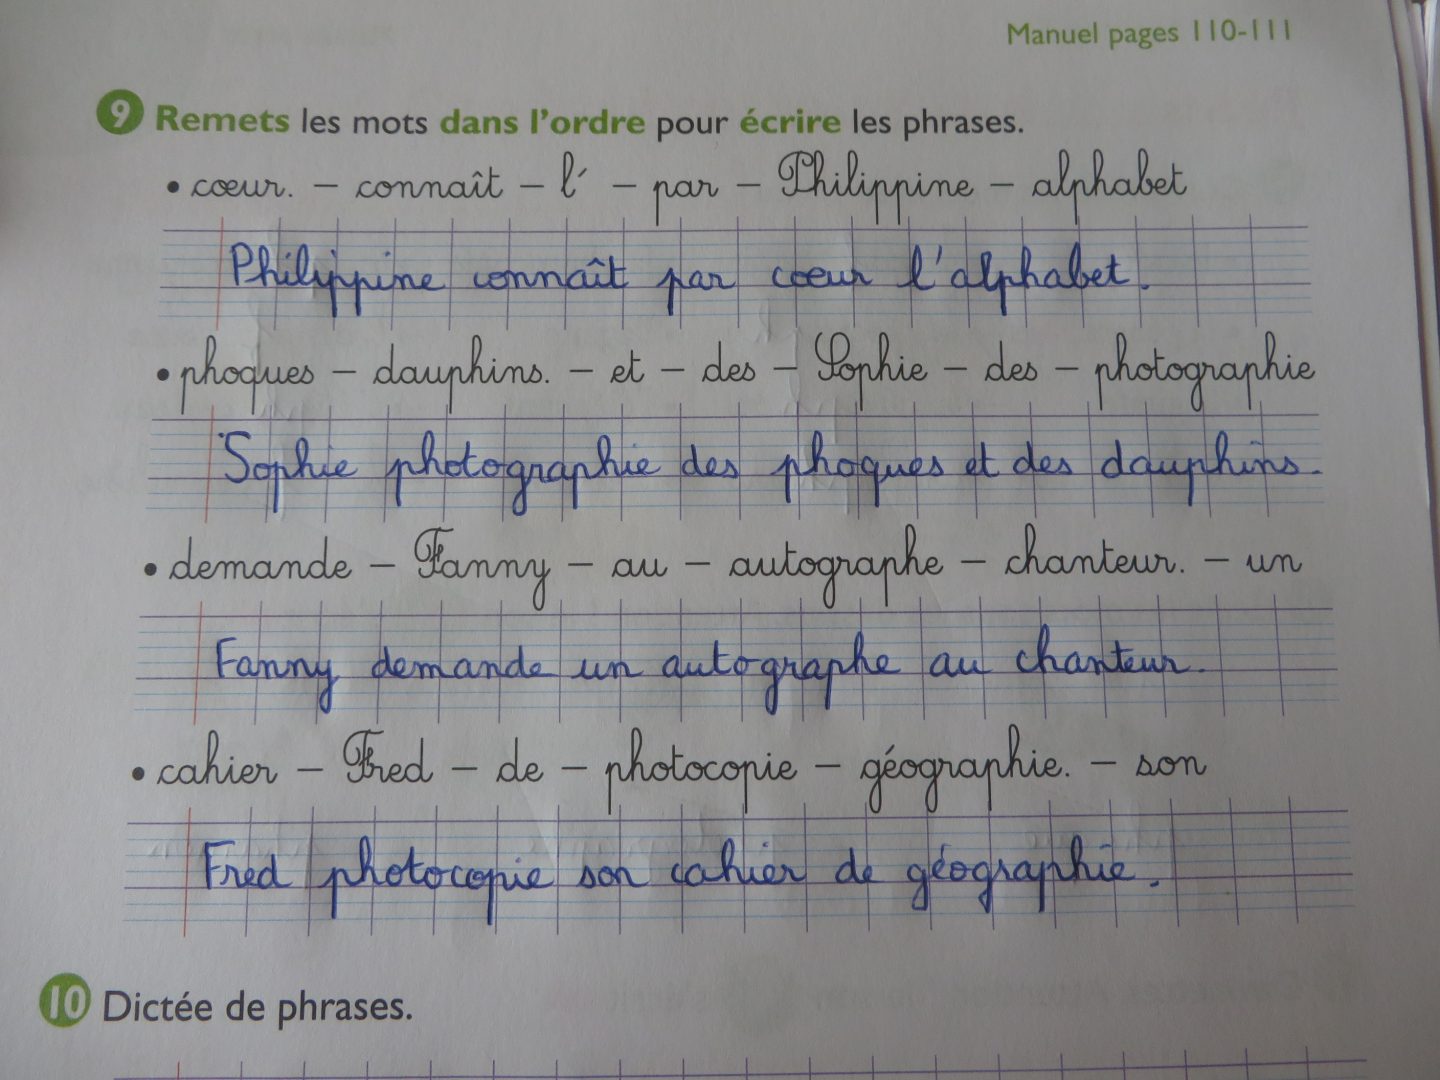 Manuel pages 110-111
9 Remets les mots dans l'ordre pour écrire les phrases.
• cœur. – connaît – l' – par – Philippine – alphabet
Philippine connaît par cœur l'alphabet.
• phoques – dauphins. – et – des – Sophie – des – photographie
Sophie photographie des phoques et des dauphins.
• demande – Fanny – au – autographe – chanteur. – un
Fanny demande un autographe au chanteur.
• cahier – Fred – de – photocopie – géographie. – son
Fred photocopie son cahier de géographie.
10 Dictée de phrases.